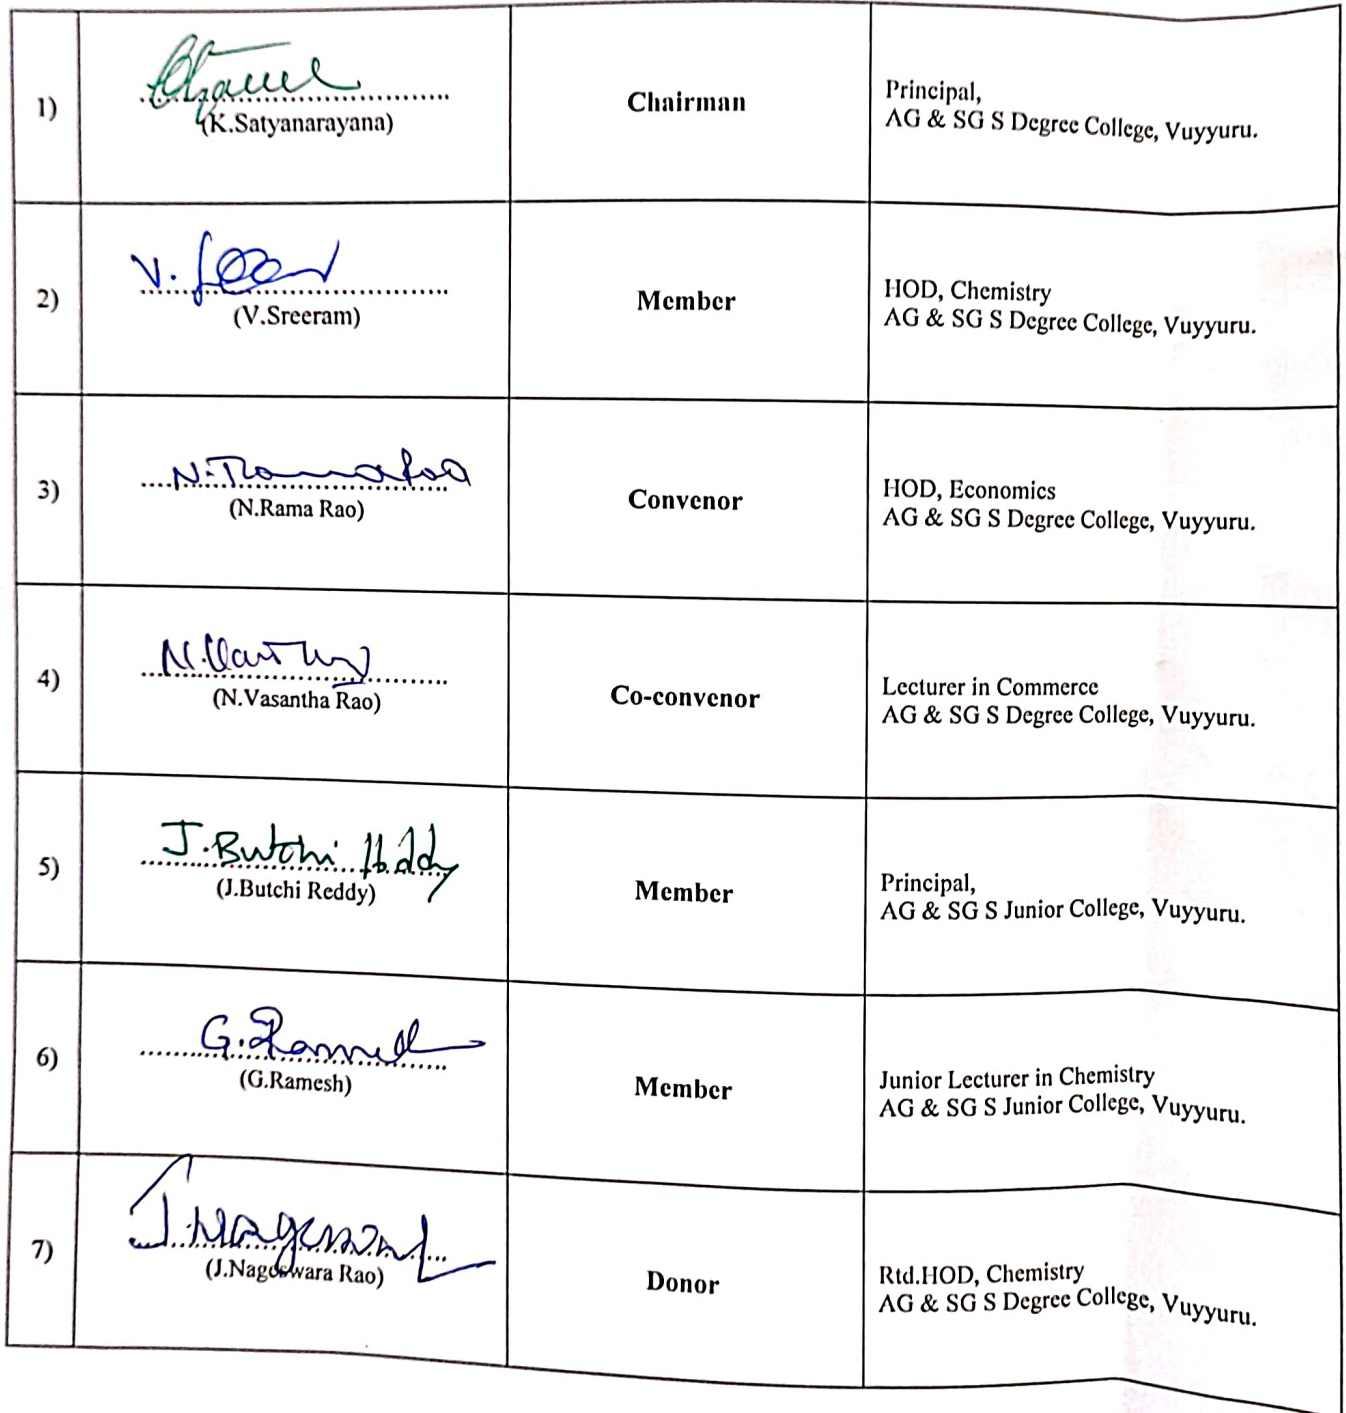 1)
(K.Satyanarayana)
Chairman
Principal,
AG & SG S Degree College, Vuyyuru.
2)
V.
(V.Sreeram)
Member
HOD, Chemistry
AG & SG S Degree College, Vuyyuru.
3)
N. Rama Rao
(N.Rama Rao)
Convenor
HOD, Economics
AG & SG S Degree College, Vuyyuru.
4)
(N.Vasantha Rao)
Co-convenor
Lecturer in Commerce
AG & SG S Degree College, Vuyyuru.
5)
J. Butchi Reddy
(J.Butchi Reddy)
Member
Principal,
AG & SG S Junior College, Vuyyuru.
6)
G. Ramesh
(G.Ramesh)
Member
Junior Lecturer in Chemistry
AG & SG S Junior College, Vuyyuru.
7)
(J.Nageswara Rao)
Donor
Rtd.HOD, Chemistry
AG & SG S Degree College, Vuyyuru.